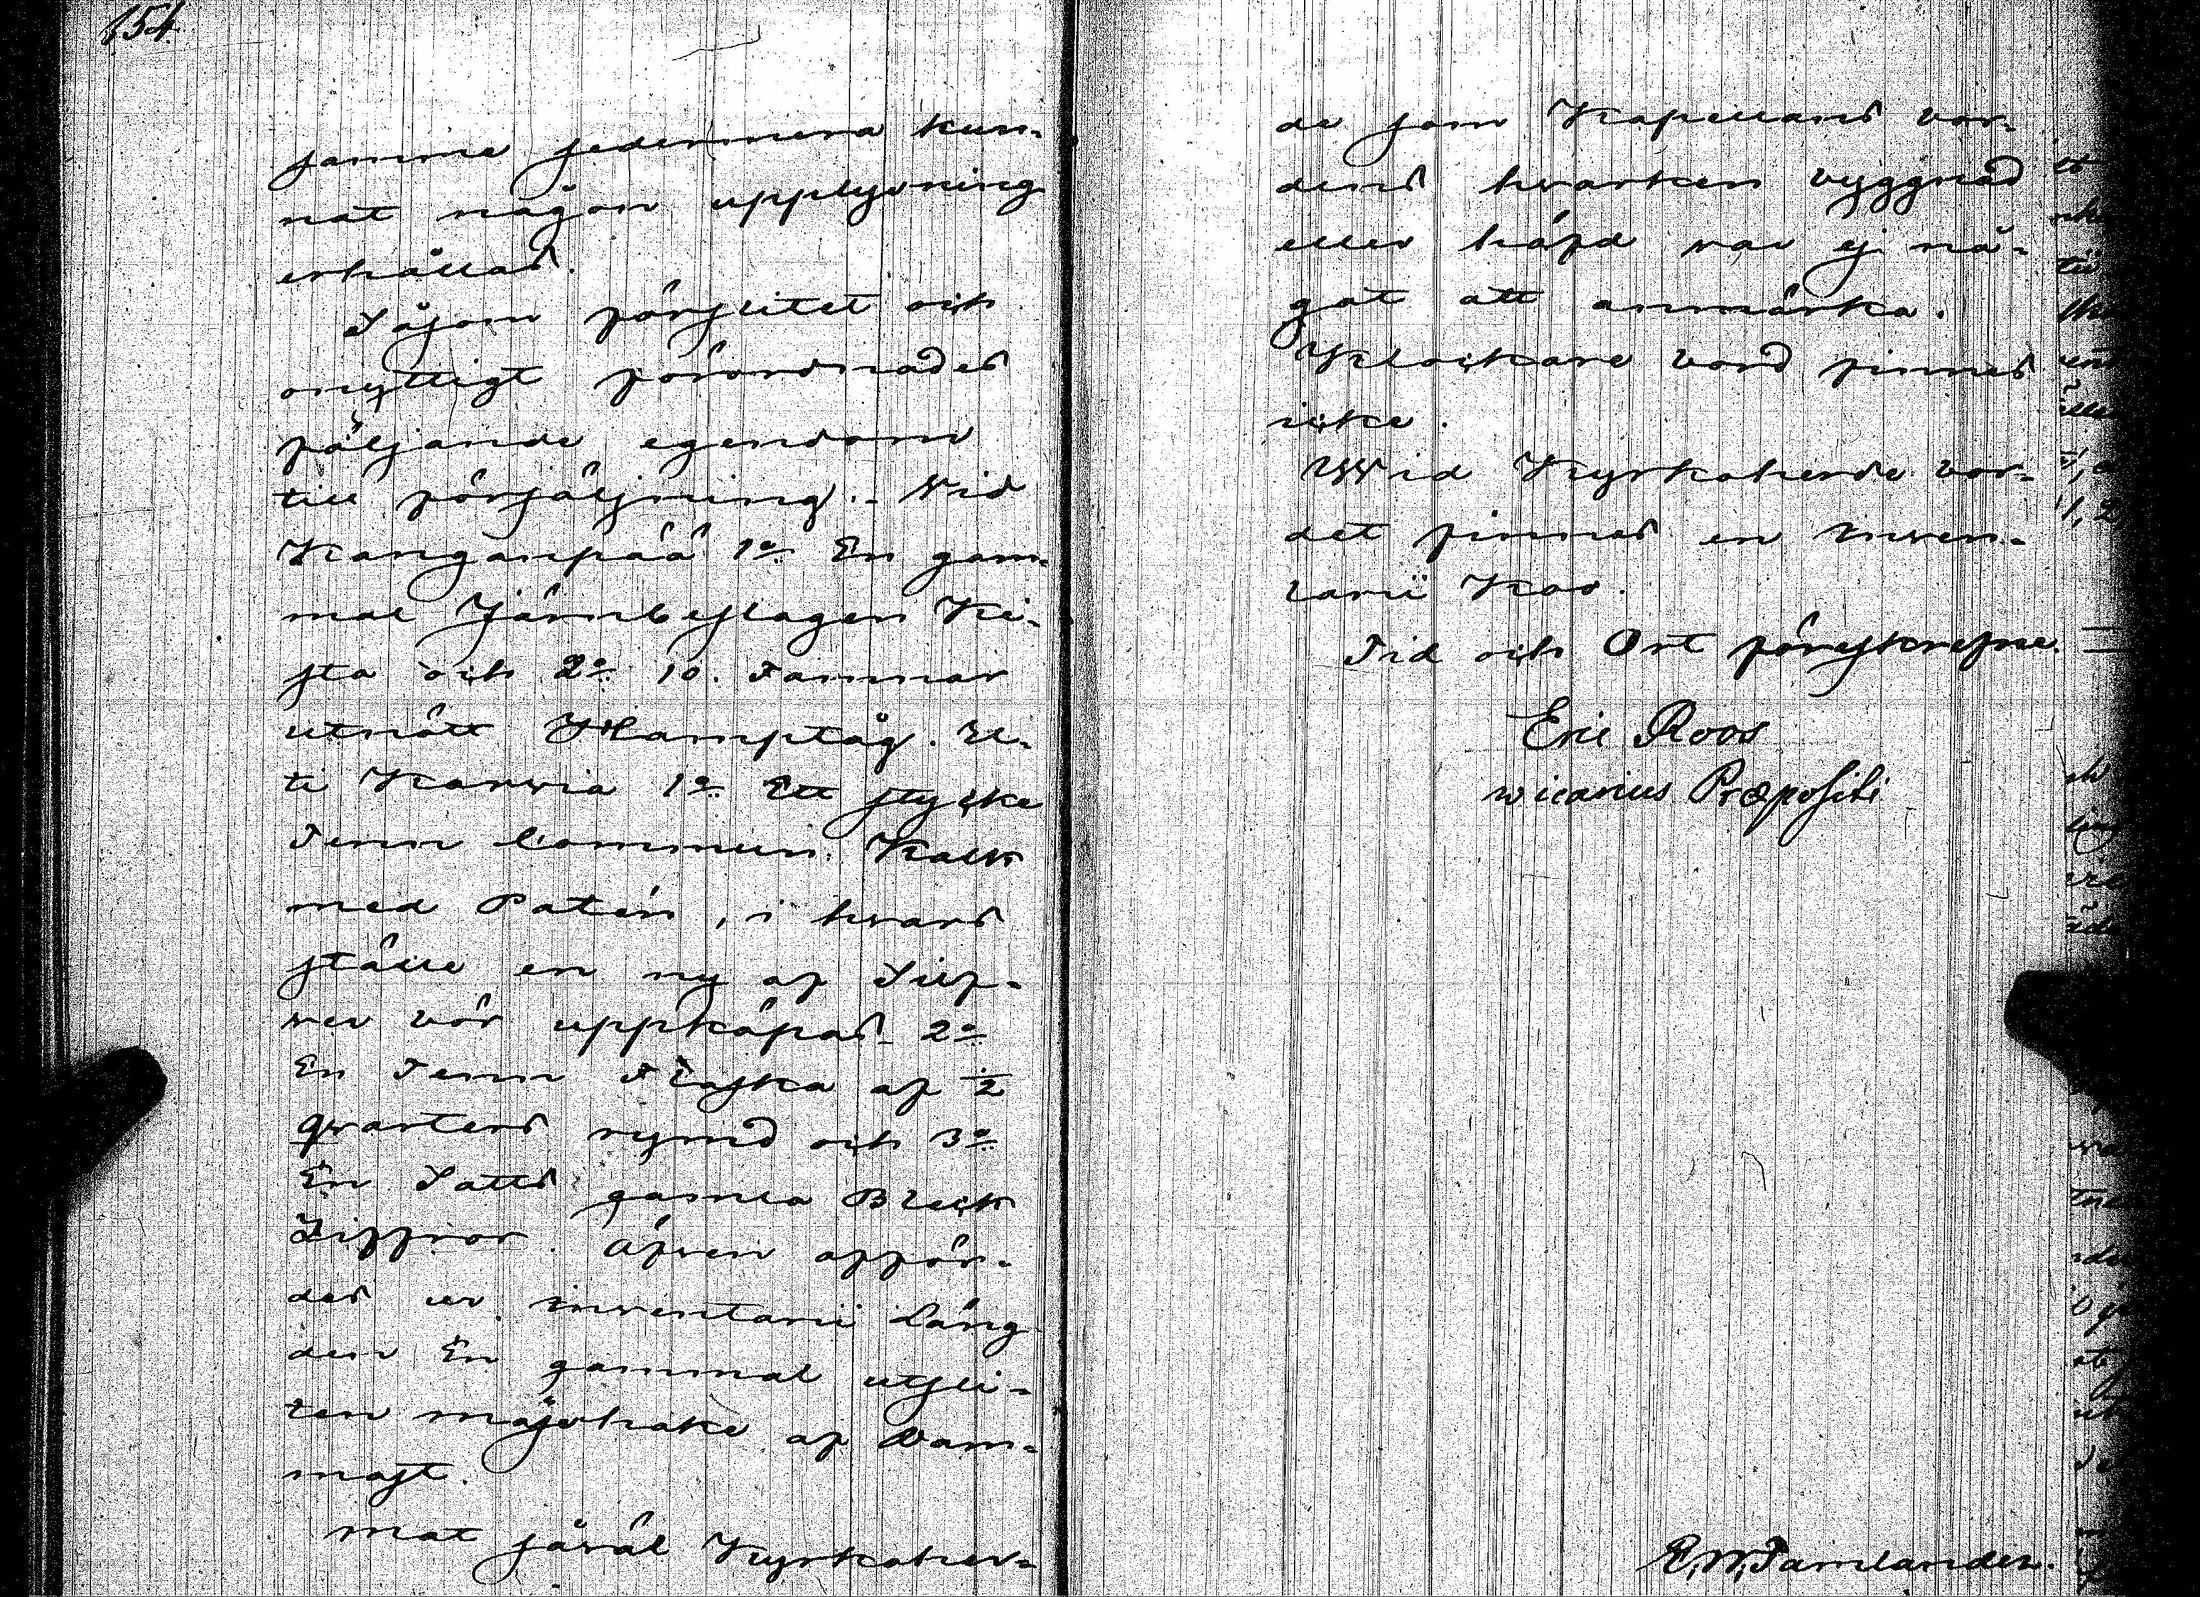 154.
samme sedermera kun-
nat någon upplysning
erhållas.
Såsom förslitet och
onyttigt förordnades
följande egendom
till försäljning:- Vid
Kanganpää 1o En gam-
mal Järnbeslagen Ki-
sta och 2o 10. Famnar
utnött Hamptåg. Uti
ti Karvia 1o Ett stycke
Tenn Commun. Kalk
med Patén, i hvars
ställe en ny af Silf-
ver bör uppköpas 2o
En Tenn Flaska af 1/2
qvarters rymd och 3o
En Satts gamla Bleck
Ziffror. Äfven afför-
des ur inventarii läng
den En gammal utsli-
ten mässhake af Dam-
mast.
Mot såväl Kyrkoher-
de som Kapellans bor-
dens hvarken byggnad
eller häfd var ej nå-
got att anmärka.
Klockare bord finnes
icke.
Wid Kyrkoherde bor-
det finnes en Inven-
tarii Kso.
Tid och Ort förestrefne.
Eric Roos
wicarius Præpositi
E. W. Tamlander.